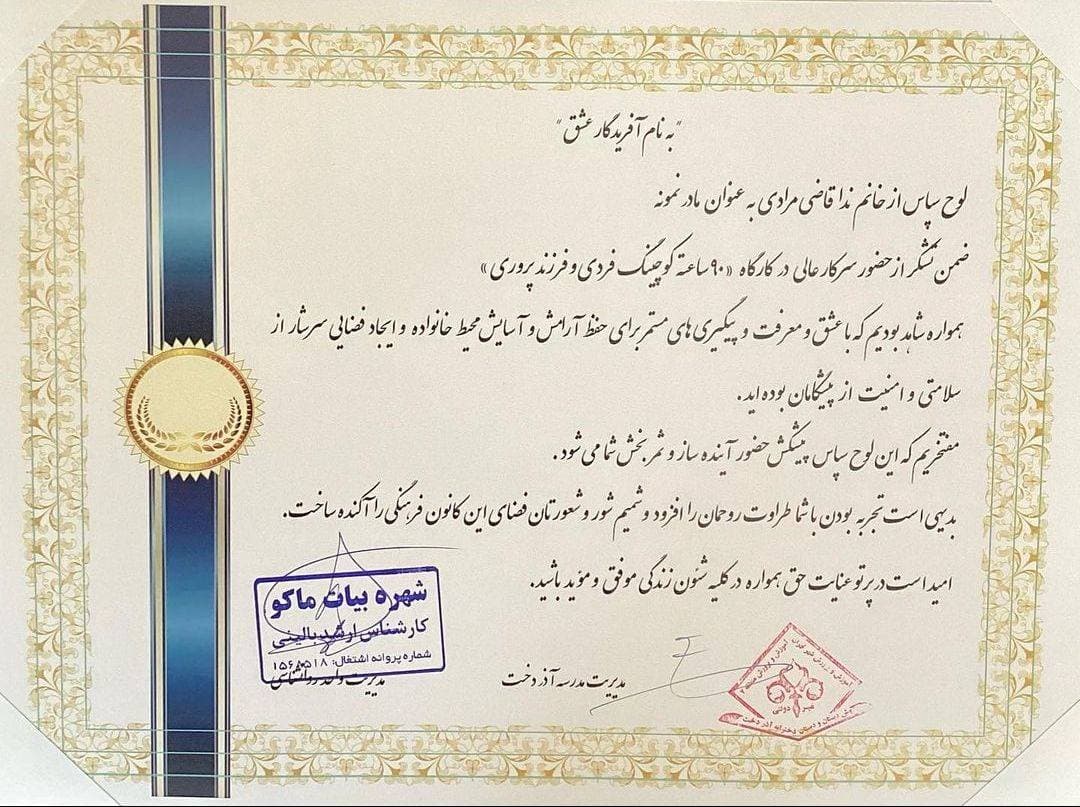 "به نام آفریدگار عشق"
لوح سپاس از خانم ندا قاضی مرادی به عنوان مادر نمونه
ضمن تشکر از حضور سرکار عالی در کارگاه «۹۰ ساعته کوچینگ فردی و فرزند پروری»
همواره شاهد بودیم که با عشق و معرفت و پیگیری های مستمر برای حفظ آرامش و آسایش محیط خانواده و ایجاد فضایی سرشار از
سلامتی و امنیت از پیشگامان بوده اید.
مفتخریم که این لوح سپاس پیشکش حضور آینده ساز و ثمربخش شما می شود.
بدیهی است تجربه بودن با شما طراوت روحمان را افزود و شمیم شور و شعورتان فضای این کانون فرهنگی را آکنده ساخت.
امید است در پرتو عنایت حق همواره در کلیه شئون زندگی موفق و مؤید باشید.
مدیریت مدرسه آذردخت
غیر دولتی
دخترانه آذردخت
شهره بیات ماکو
کارشناس ارشد بالینی
شماره پروانه اشتغال:
مدیریت واحد روانشناسی